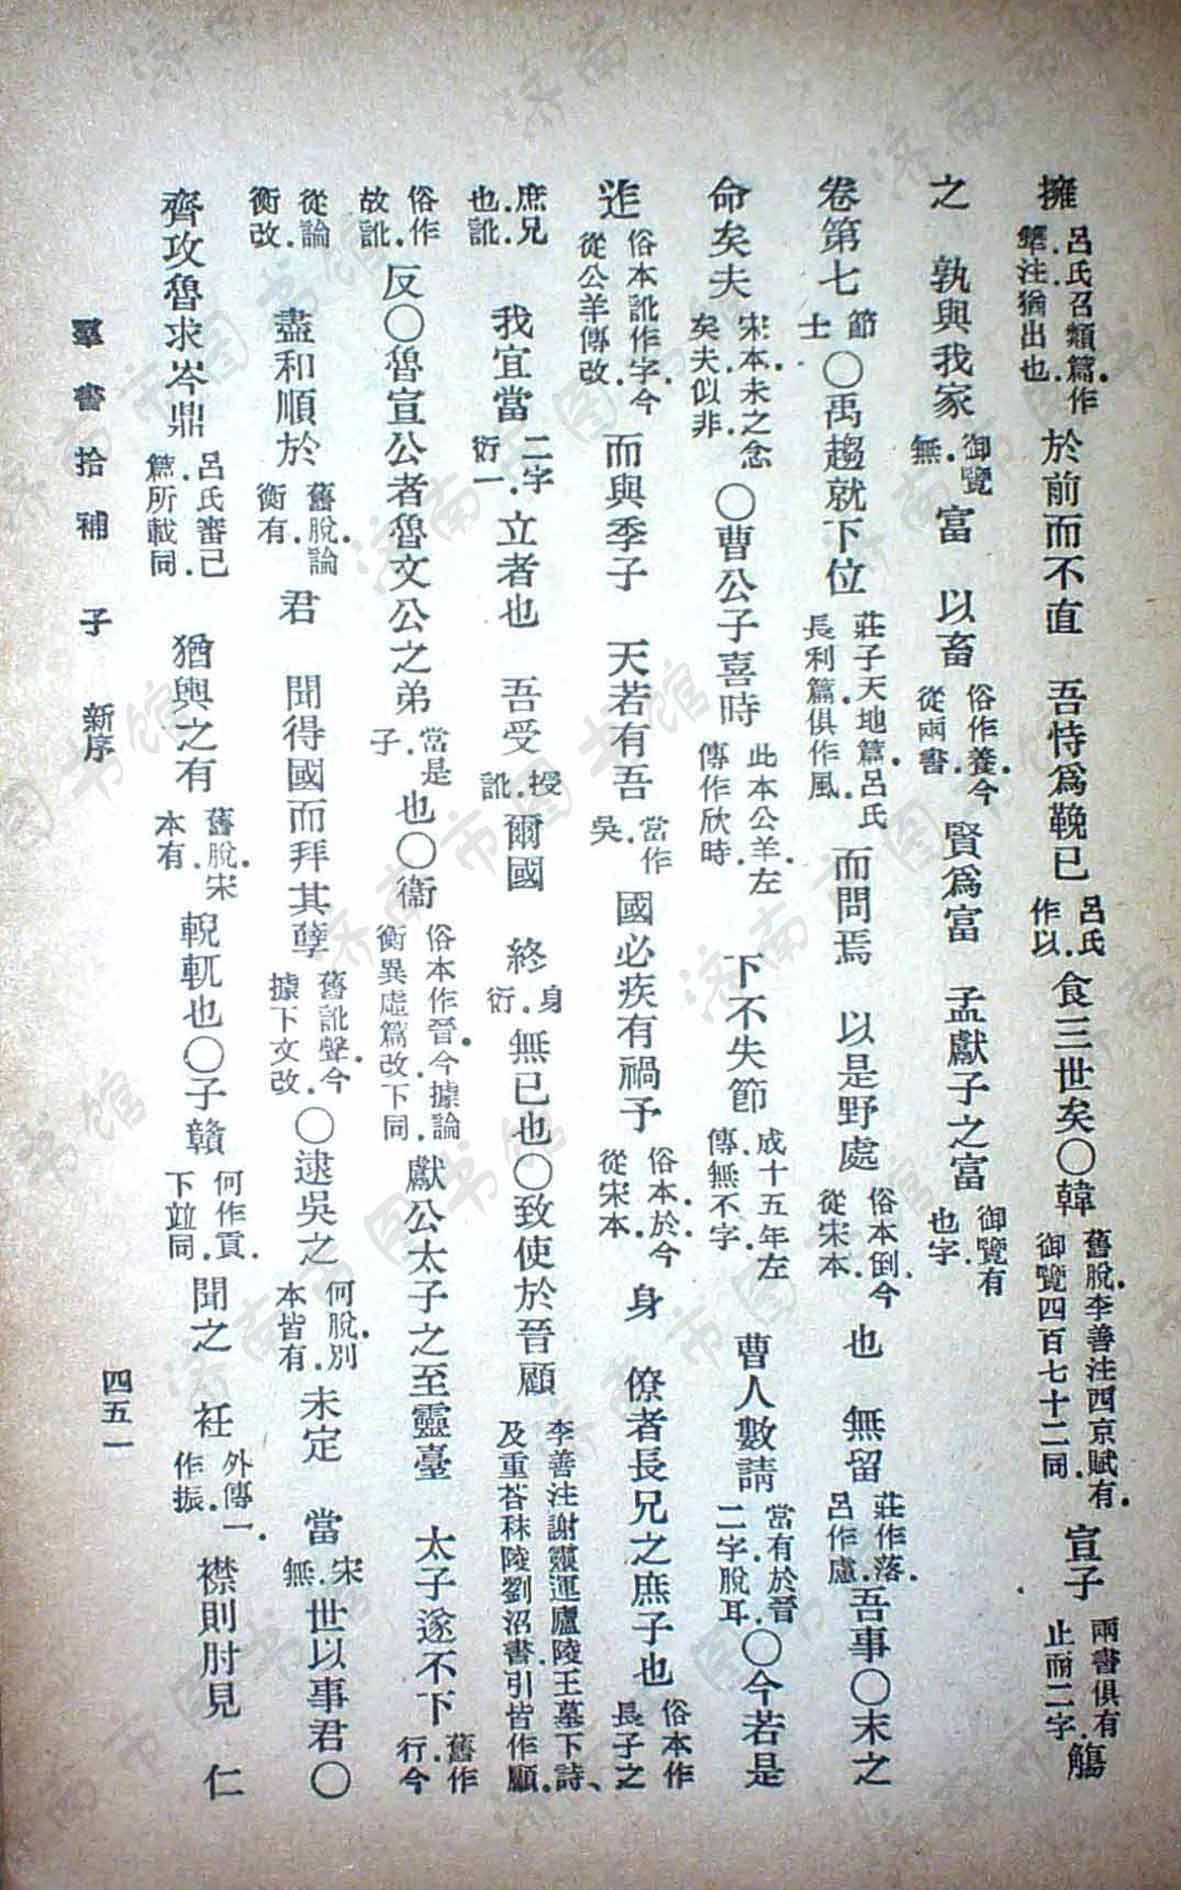 擁呂氏召類篇作犨.注猶出也.於前而不直　吾恃爲鞔已呂氏作以.食三世矣〇韓舊脫.李善注西京賦有.御覽四百七十二同.宣子兩書俱有止而二字.觴
之　孰與我家御覽無.富　以畜俗作養.今從兩書.賢爲富　孟獻子之富御覽有也字.
卷第七節士〇禹趨就下位莊子天地篇.呂氏長利篇.俱作風.而問焉　以是野處俗本倒.今從宋本.也　無留莊作落.呂作慮.吾事〇末之
命矣夫宋本.未之念矣夫.似非.〇曹公子喜時此本公羊.左傳作欣時.下不失節成十五年左傳.無不字.曹人數請當有於晉二字.脫耳.〇今若是
迮俗本訛作字.今從公羊傳改.而與季子　天若有吾當作吳.國必疾有禍予俗本.於.今從宋本.身　僚者長兄之庶子也俗本作長子之
庶兄也.訛.我宜當二字衍一.立者也　吾受授訛.爾國　終身衍.無已也〇致使於晉顧李善注謝靈運廬陵王墓下詩、及重荅秣陵劉沼書.引皆作顧.
俗作故.訛.反〇魯宣公者魯文公之弟當是子.也〇衞俗本作晉.今據論衡異虛篇改.下同.獻公太子之至靈臺　太子遂不下舊作行.今
從論衡改.盡和順於舊脫.論衡有.君　聞得國而拜其孽舊訛聲.今據下文改.〇逮吳之何脫.別本皆有.未定　當宋無.世以事君〇
齊攻魯求岑鼎呂氏審己篇.所載同.猶輿之有舊脫.宋本有.輗軏也〇子贛何作貢.下竝同.聞之　衽外傳一.作振.襟則肘見　仁
羣書拾補　子　新序
四五一